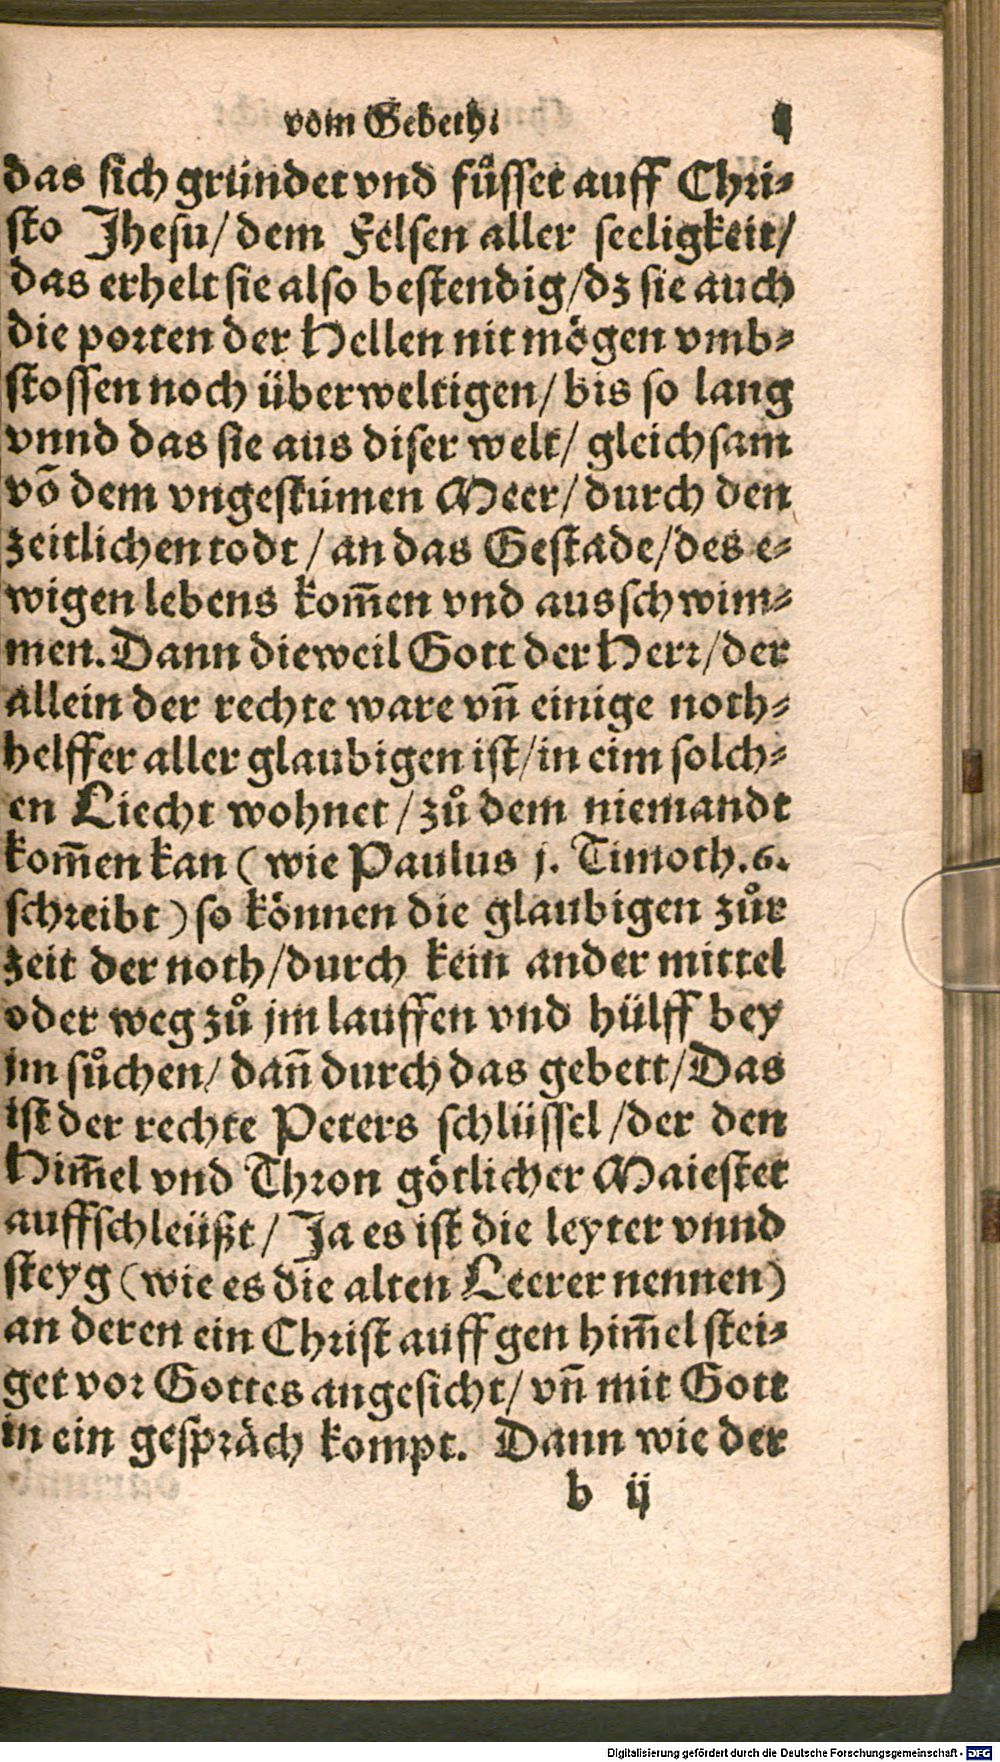 vom Gebeth.
das sich gründet vnd fůsset auff Chri-
sto Jhesu/ dem Felsen aller seeligkeit/
das erhelt sie also bestendig/ dz sie auch
die porten der Hellen nit mögen vmb-
stossen noch überweltigen/ bis so lang
vnnd das sie aus diser welt/ gleichsam
võ dem vngestümen Meer/ durch den
zeitlichen todt / an das Gestade/ des e-
wigen lebens kom̃en vnd ausschwim-
men. Dann dieweil Gott der Herr/ der
allein der rechte ware vñ einige noth-
helffer aller glaubigen ist/ in eim solch-
en Liecht wohnet / zů dem niemandt
kom̃en kan ( wie Paulus j. Timoth. 6.
schreibt ) so können die glaubigen zůr
zeit der noth/ durch kein ander mittel
oder weg zů jm lauffen vnd hülff bey
jm sůchen/ dañ durch das gebett/ Das
ist der rechte Peters schlüssel / der den
Him̃el vnd Thron götlicher Maiestet
auffschleüßt/ Ja es ist die leyter vnnd
steyg ( wie es die alten Leerer nennen )
an deren ein Christ auff gen him̃el stei-
get vor Gottes angesicht/ vñ mit Gott
in ein gespräch kompt. Dann wie der
b ij
Digitalisierung gefördert durch die Deutsche Forschungsgemeinschaft - DFG